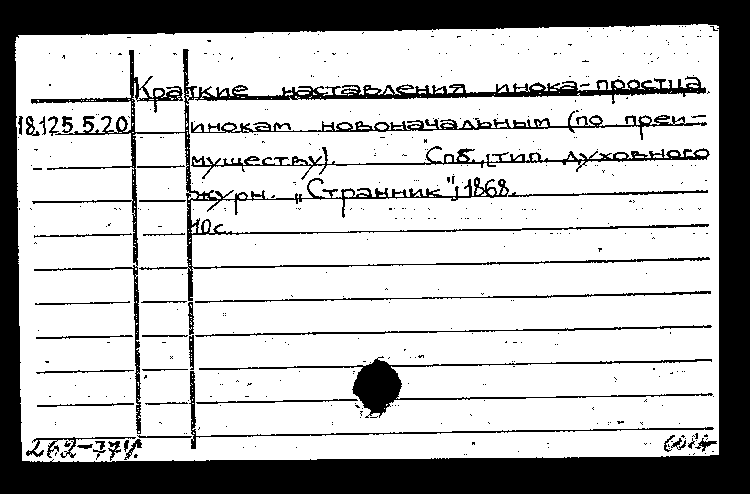 Краткие наставления инока-простца
18.125.5.20 инокам новоначальным (по преи-
муществу). Спб., тип. духовного
журн. „Странник", 1868.
10с.
262-77г.